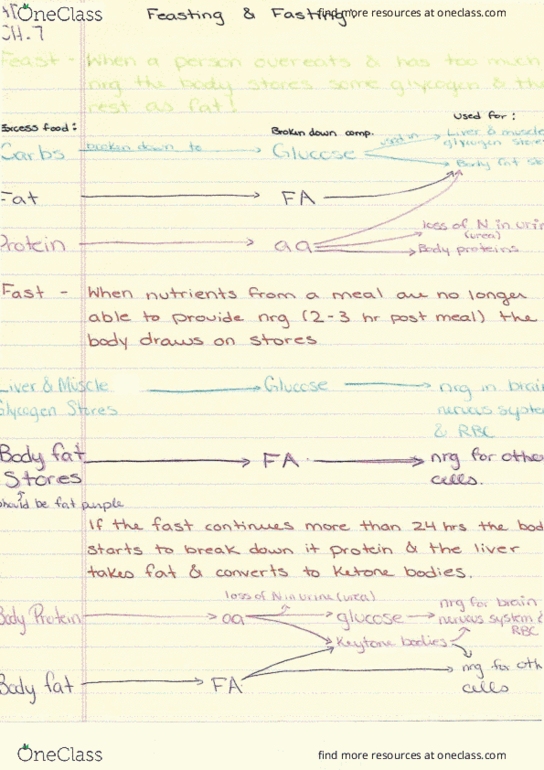 OneClass
Feasting & Fasting
find more resources at oneclass.com
CH.7
Feast - When a person overeats & has too much
nrg the body stores some glycogen & the
rest as fat!
Excess food:
Broken down comp.
used for:
Carbs broken down to Glucose used in Liver & muscle
glycogen stores
Body fat
Fat FA
Protein aa loss of N in urin
(urea)
Body proteins
Fast - When nutrients from a meal are no longer
able to provide nrg (2-3 hr post meal) the
body draws on stores
Liver & Muscle Glucose nrg in brain
Glycogen Stores nervous syste
& RBC
Body fat FA nrg for othe
Stores cells.
should be fat purple
If the fast continues more than 24 hrs the bod
starts to break down it protein & the liver
takes fat & converts to ketone bodies.
loss of N in urine (urea) nrg for brain
Body Protein aa glucose nervous system &
RBC
Keytone bodies
Body fat FA nrg for oth
cells
OneClass
find more resources at oneclass.com